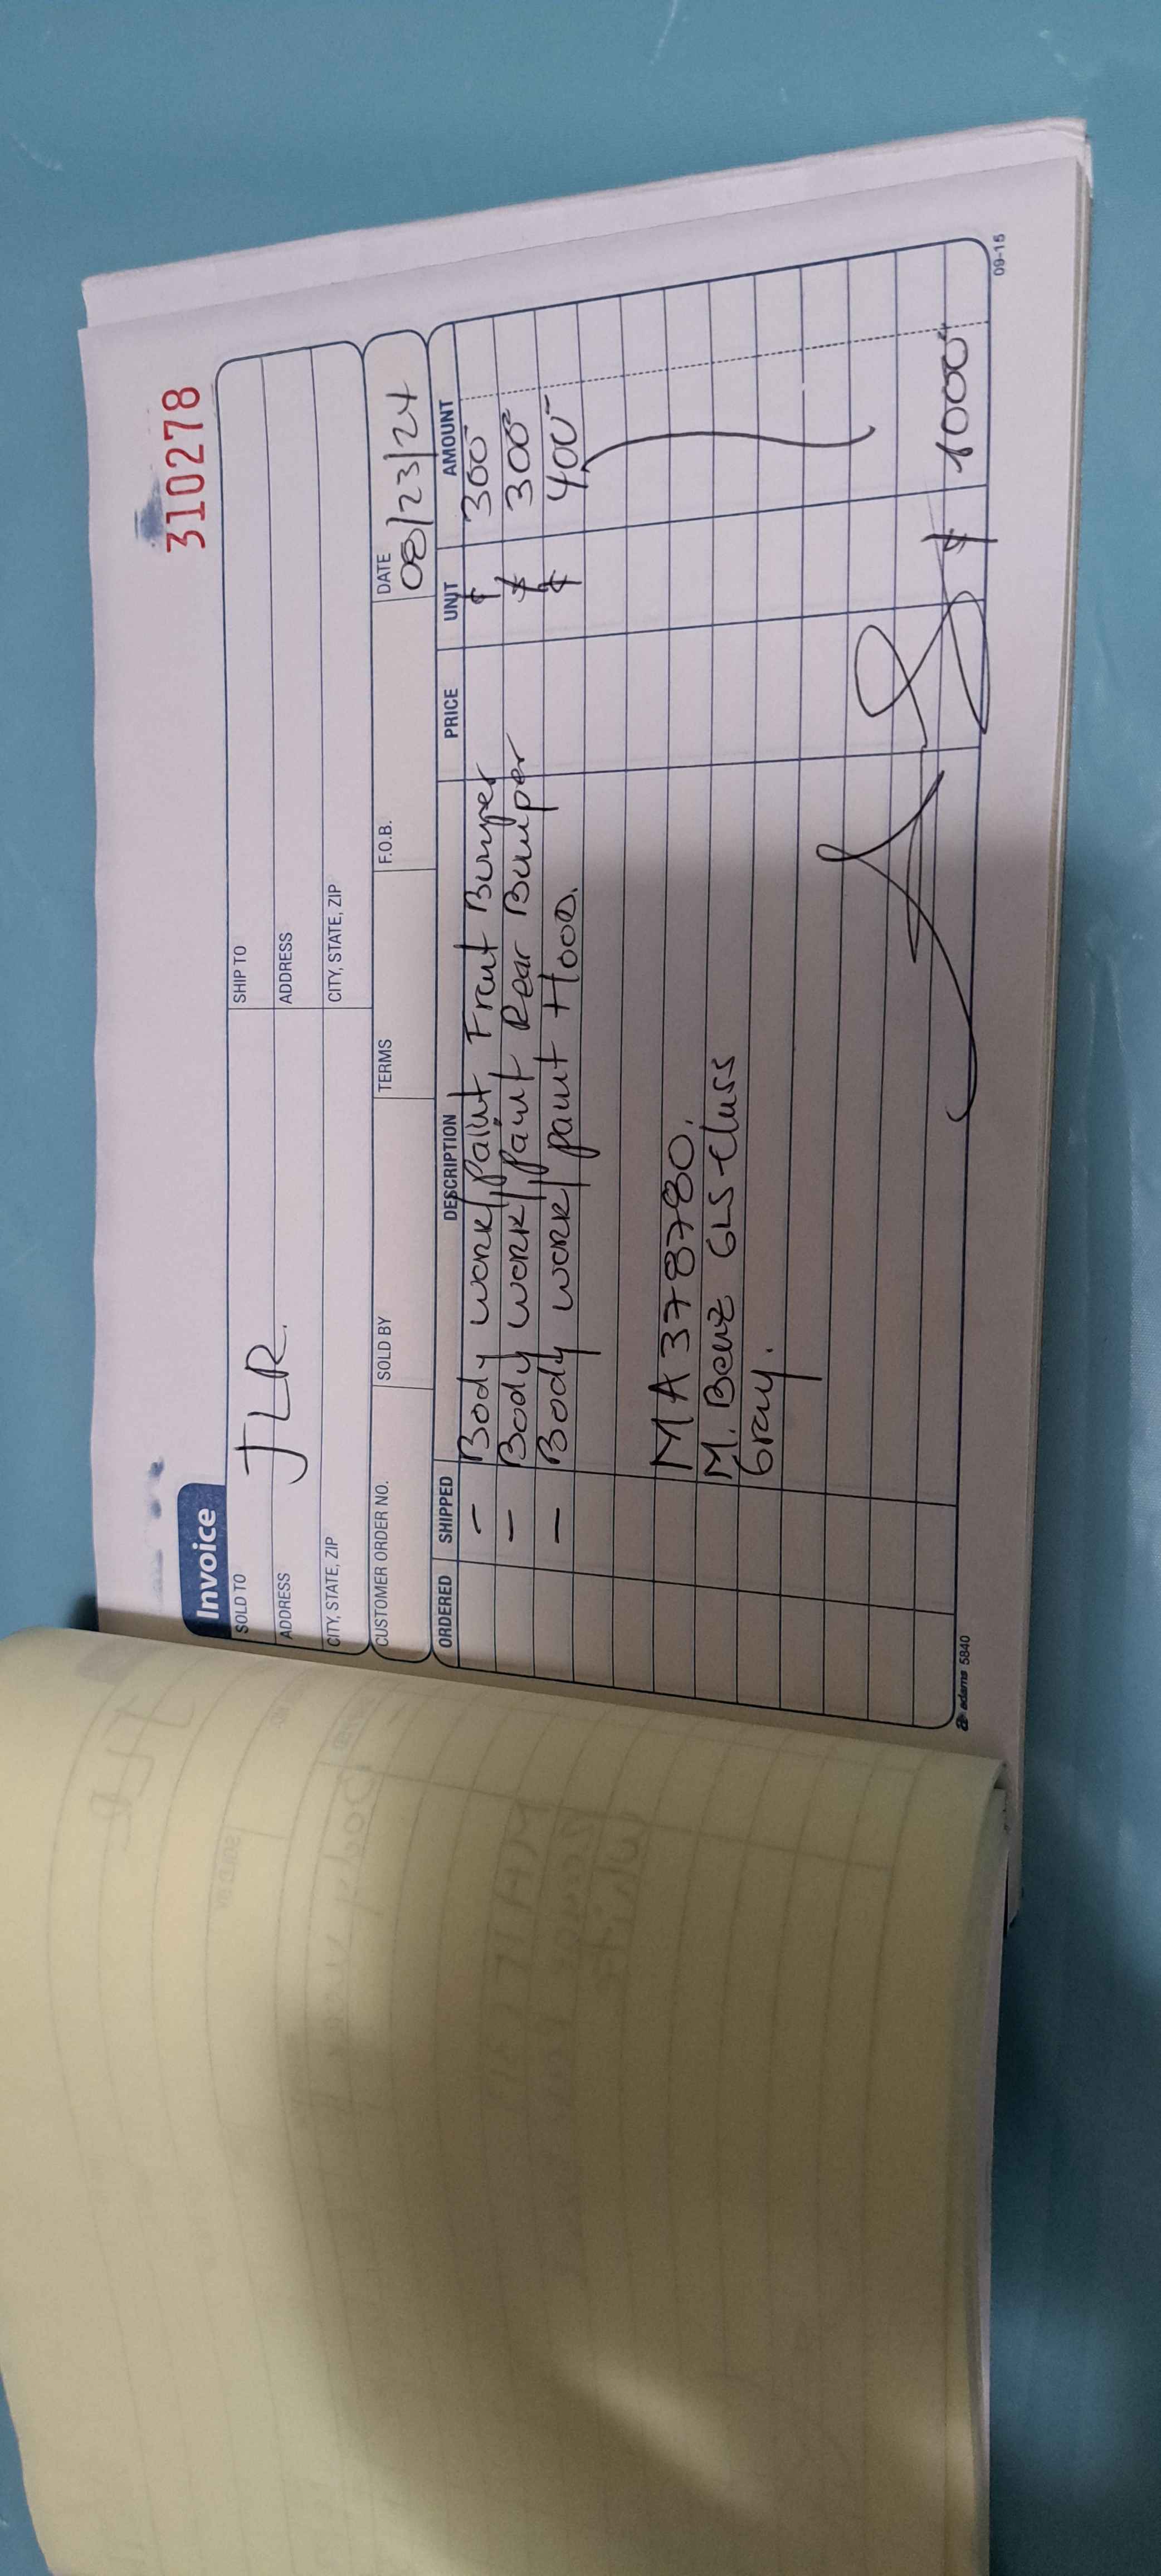 310278
Invoice
SOLD TO JLR. SHIP TO
ADDRESS ADDRESS
CITY, STATE, ZIP CITY, STATE, ZIP
CUSTOMER ORDER NO. SOLD BY TERMS F.O.B. DATE 08/23/24
ORDERED SHIPPED DESCRIPTION PRICE UNIT AMOUNT
- Body work/Paint Front Bumper $ 300
- Body work/Paint Rear Bumper $ 300
- Body work/paint Hood. $ 400
MA378780.
M. Benz GLS-Class
Gray.
$ 1000
adams 5840 09-15